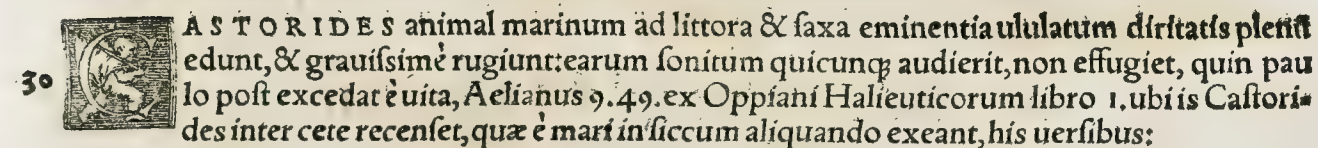 CASTORIDES animal marinum ad littora & ſaxa eminentia ululatum diritatis plenũ
edunt, & grauiſsimè rugiunt: earum ſonitum quicunq; audierit, non effugiet, quin pau
30 lo poſt excedat è uita, Aelianus 9.49. ex Oppiani Halieuticorum libro 1. ubi is Caſtori-
des inter cete recenſet, quæ è mari in ſiccum aliquando exeant, his uerſibus: